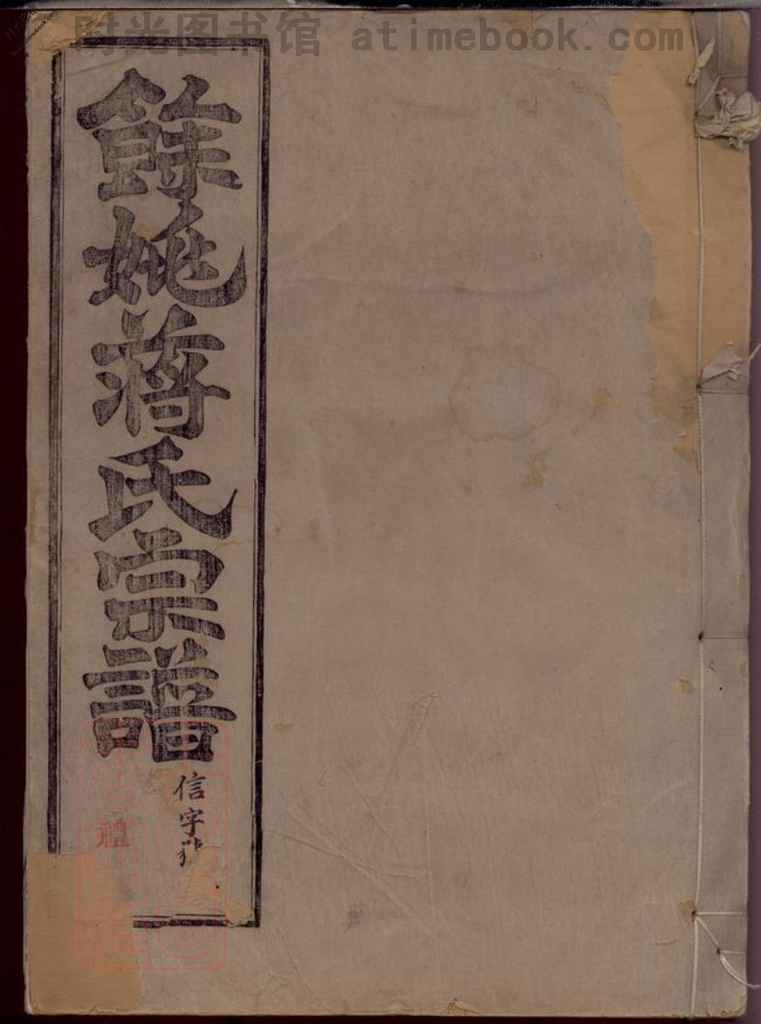 时光图书馆 atimebook.com
餘姚蔣氏宗譜
信字
禮